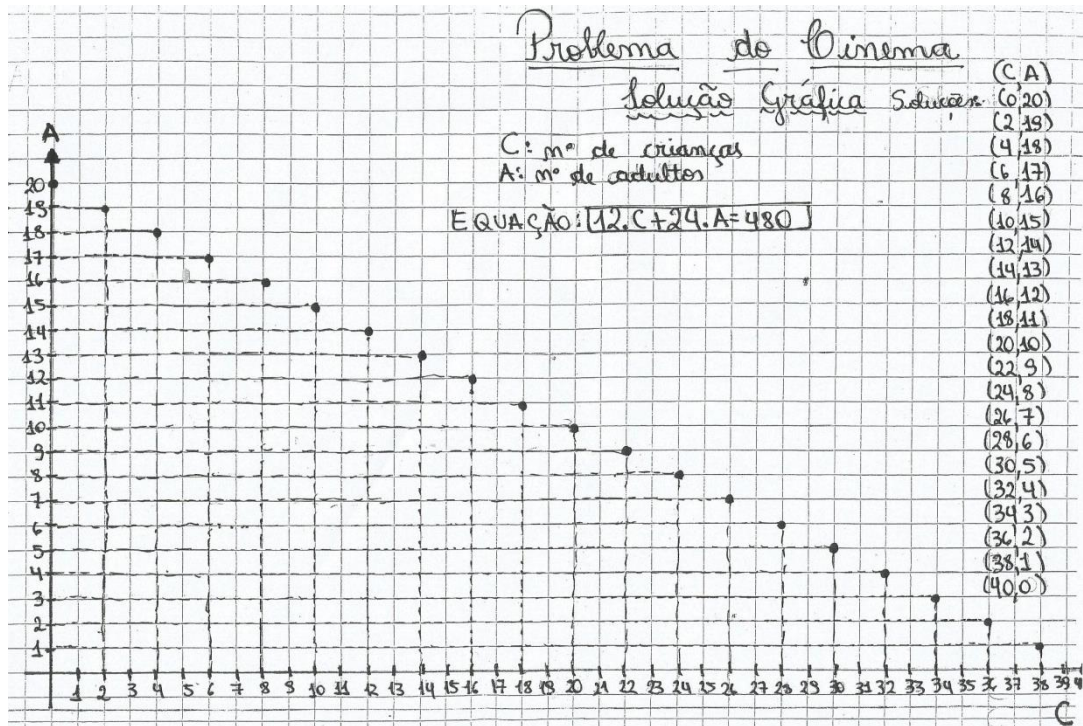 Problema do Cinema
Solução Gráfica Soluções:
(C,A)
(0,20)
(2,19)
(4,18)
(6,17)
(8,16)
(10,15)
(12,14)
(14,13)
(16,12)
(18,11)
(20,10)
(22,9)
(24,8)
(26,7)
(28,6)
(30,5)
(32,4)
(34,3)
(36,2)
(38,1)
(40,0)
C: nº de crianças
A: nº de adultos
EQUAÇÃO: 12.C+24.A=480
A
20
19
18
17
16
15
14
13
12
11
10
9
8
7
6
5
4
3
2
1
1 2 3 4 5 6 7 8 9 10 11 12 13 14 15 16 17 18 19 20 21 22 23 24 25 26 27 28 29 30 31 32 33 34 35 36 37 38 39
C